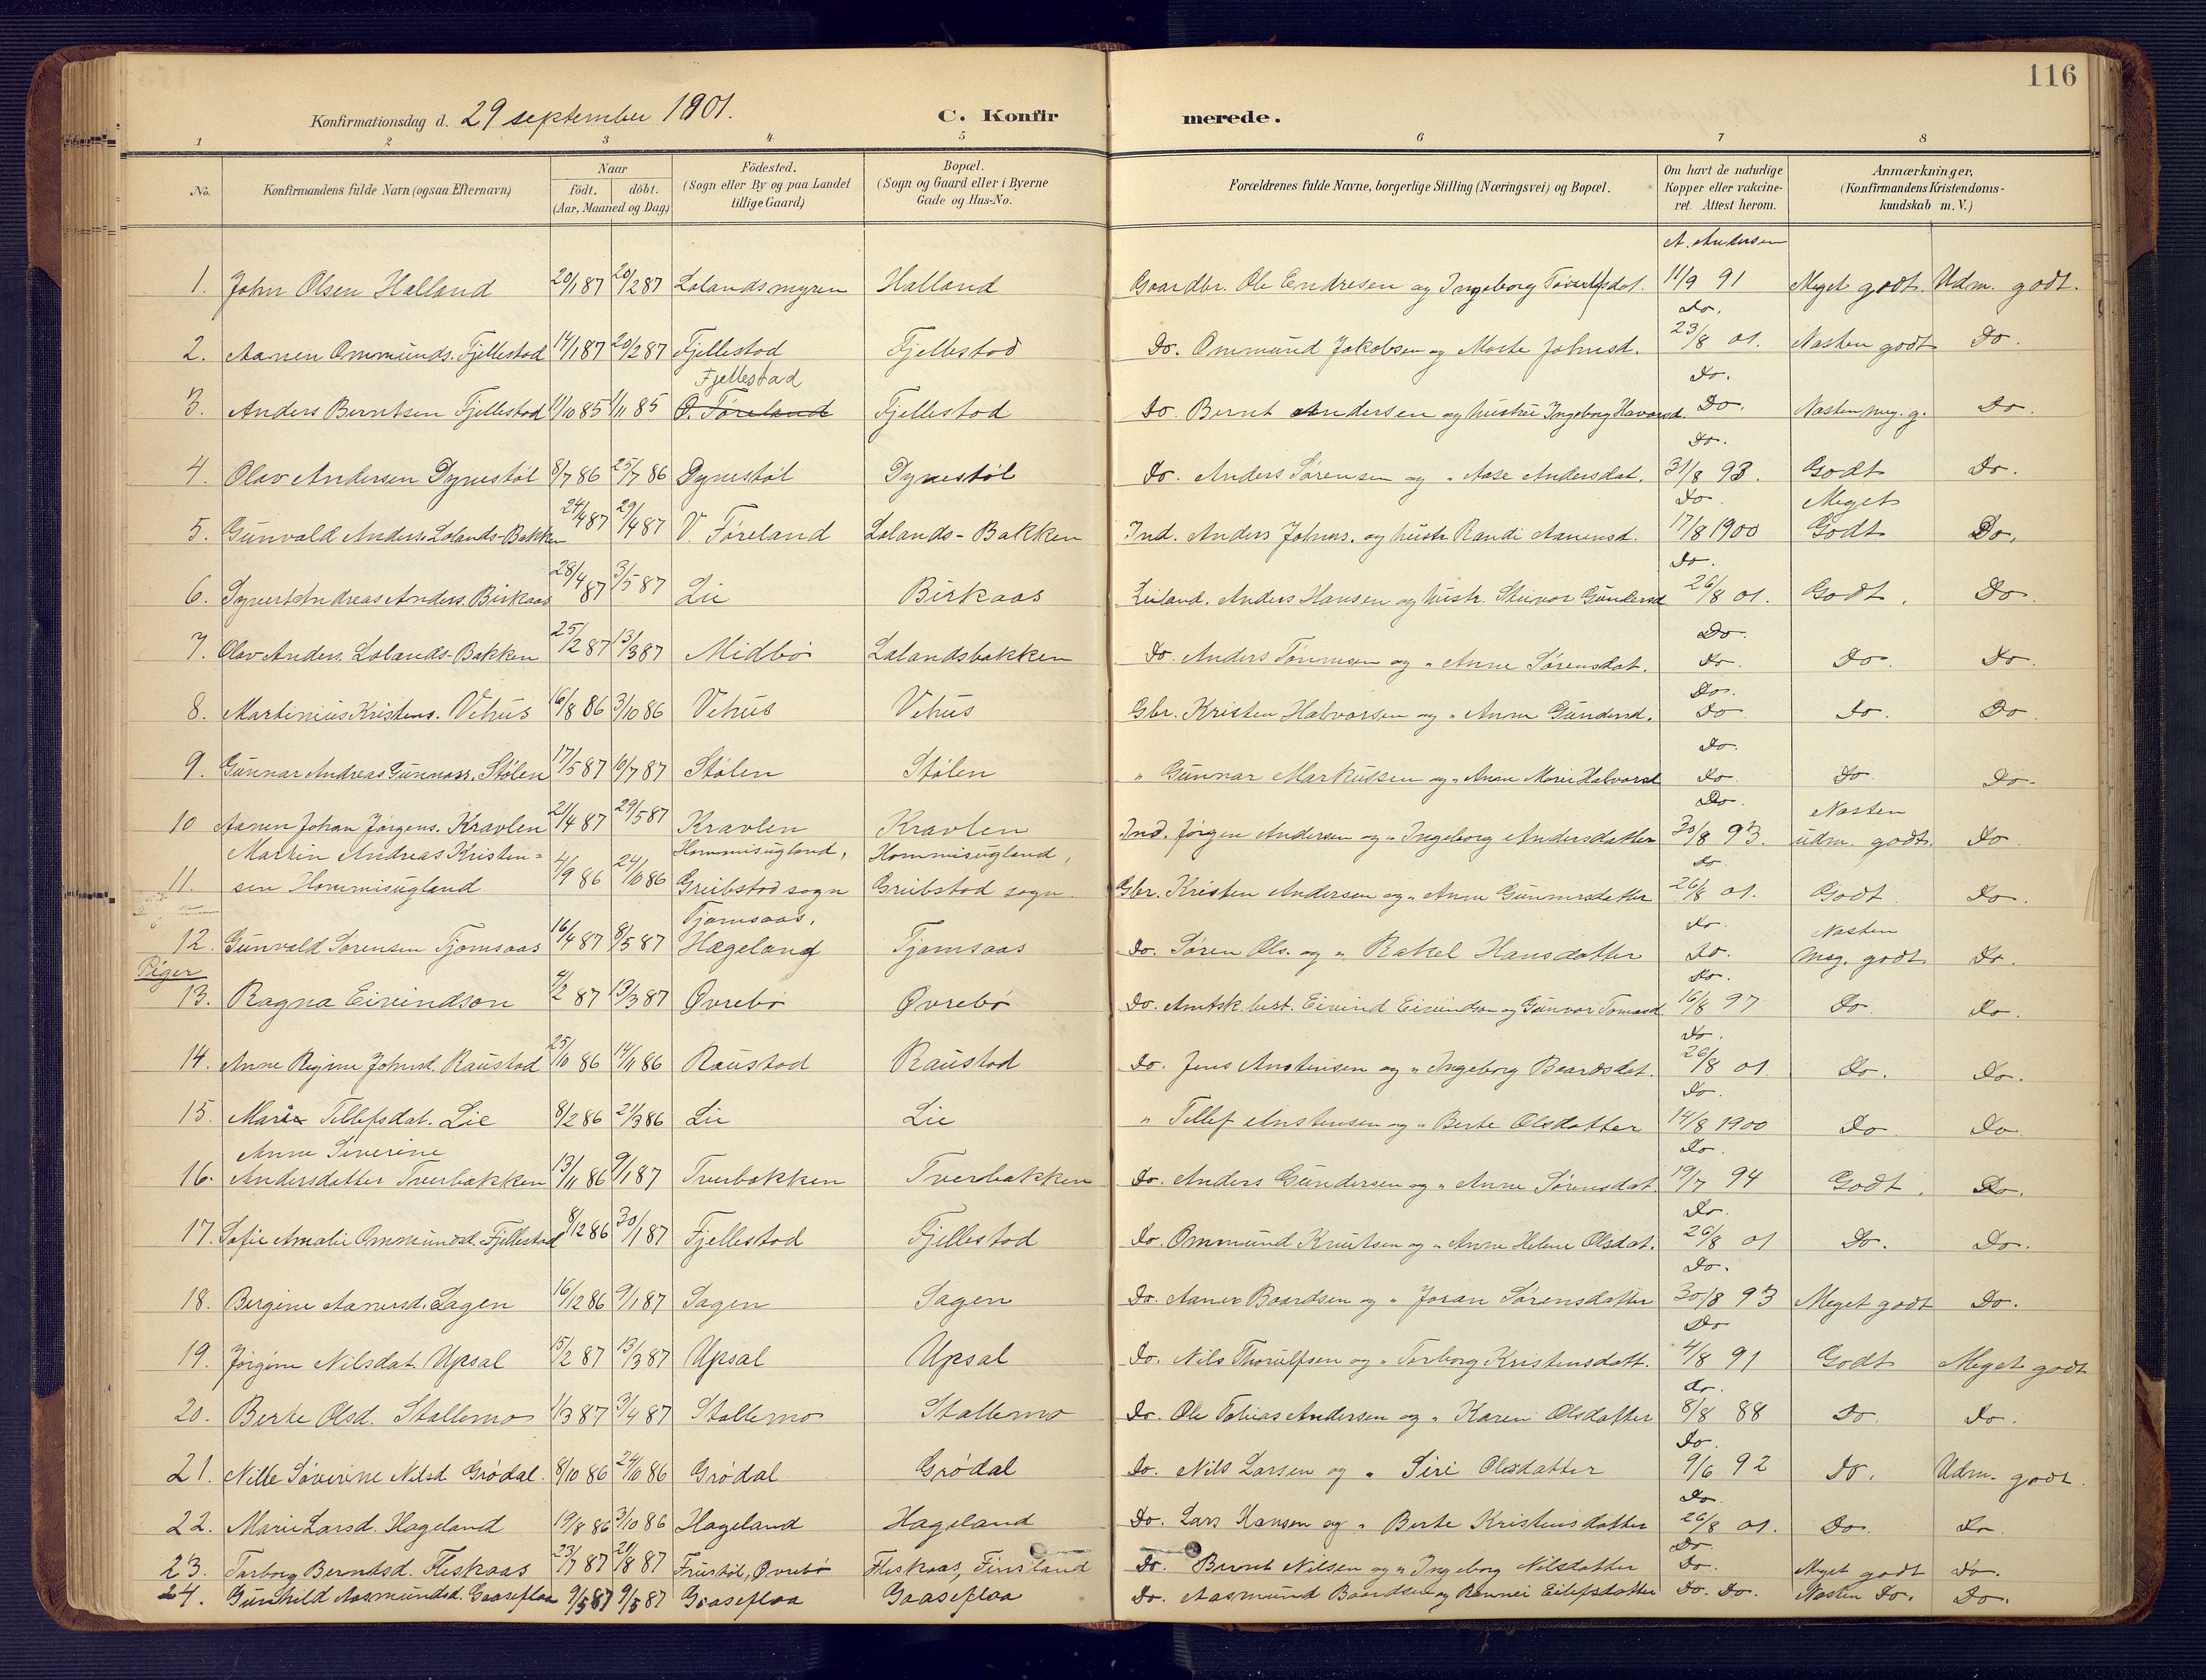 116
Konfirmationsdag d. 29 september 1901. C. Konfirmerede.
1 2 3 4 5 6 7 8
No. Konfirmandens fulde Navn (ogsaa Efternavn) Naar födt. döbt. (Aar, Maaned og Dag) Födested. (Sogn eller By og paa Landet tillige Gaard) Bopæl. (Sogn og Gaard eller i Byerne Gade og Hus-No. Forældrenes fulde Navne, borgerlige Stilling (Næringsvei) og Bopæl. Om havt de naturlige Kopper eller vakcineret. Attest herom. Anmærkninger, (Konfirmandens Kristendomskundskab m. V.)
A. Andersen
1. John Olsen Halland 20/1 87 20/2 87 Lolandsmyren Halland Gaardbr. Ole Endresen og Ingeborg 11/9 91 Meget godt. Udm. godt.
Do.
2. Aanen Ommunds. Fjellestad 14/1 87 20/2 87 Fjellestad Fjellestad Do. Ommund Jakobsen og Marte Johnsd. 23/8 01. Næsten godt Do.
Fjellestad Do.
3. Anders Berntsen Fjellestad 11/10 85 1/11 85 O. Føreland Fjellestad Do. Bernt Andersen og hustru Ingeborg Havorsd. Do. Næsten meg. g. Do.
Do.
4. Olav Andersen Dynestøl 8/7 86 25/7 86 Dynestøl Dynestøl Do. Anders Sørensen og " Aase Andersdat. 31/8 93. Godt Do.
Do. Meget
5. Gunvald Anders. Lolands-Bakken 24/4 87 29/4 87 V. Føreland Lolands-Bakken Ind. Anders Johns. og hustr. Randi Aanensd. 17/8 1900 Godt Do.
Do.
6. Syvert Andreas Anders. Birkaas 28/4 87 3/5 87 Lie Birkaas Leiland. Anders Hansen og hustr. Gundersd 26/8 01. Godt. Do
Do.
7. Olav Anders. Lolands-Bakken 25/2 87 13/3 87 Midbø Lolandsbakken Do. Anders Tønnesen og " Anne Sørensdat. Do. Do. Do.
Do.
8. Martinius Kristens. Vehus 16/8 86 3/10 86 Vehus Vehus Gbr. Kristen Halvorsen og " Anne Gundersd. Do Do. Do
Do.
9. Gunnar Andreas Gunnars. Stølen 17/5 87 10/7 87 Stølen Stølen " Gunnar Markussen og " Anne Marie Halvorsd Do Do. Do
Do. Næsten
10 Aanen Johan Jørgens. Kravlen 21/4 87 29/5 87 Kravlen Kravlen Ind. Jørgen Andersen og " Ingeborg Andersdatter 30/8 93. udm. godt. Do
Martin Andreas Kristen- Hommisugland, Hommisugland, Do
11. sen Hommisugland 4/9 86 24/10 86 Greibstad sogn Greibstad sogn Gbr. Kristen Andersen og " Anne Gunnersdatter 26/8 01. Godt Do.
Tjomsaas, Do. Næsten
12. Gunvald Sørensen Tjomsaas 16/4 87 8/5 87 Hægeland Tjomsaas Do. Søren Ols. og " Rakel Hansdatter Do. meg. godt Do.
Piger Do.
13. Ragna Eivindson 9/2 87 13/3 87 Øvrebø Øvrebø Do. Amtsk. best. Eivind Eivindson og Gunvor Tomasd 16/8 97 Do Do.
Do.
14. Anne Regine Johnsd. Raustad 25/10 86 14/11 86 Raustad Raustad Do. Jens Anstensen og " Ingeborg Baardsdat. 26/8 01 Do. Do.
Do.
15. Marie Tellefsdat. Lie 8/2 86 21/3 86 Lie Lie " Tellef Anstensen og " Berte Olsdatter 14/8 1900 Do Do
Anne Severine Do.
16. Andersdatter Tverbakken 13/11 86 9/1 87 Tverbakken Tverbakken Do. Anders Gundersen og " Anne Sørensdat. 19/7 94 Godt. Do.
Do.
17. Sofie Amalie Ommundsd. Fjellestad 8/12 86 30/1 87 Fjellestad Fjellestad Do. Ommund Knutsen og " Anne Helene Olsdat. 26/8 01 Do. Do.
Do.
18. Bergine Aanensd. Sagen 16/12 86 9/1 87 Sagen Sagen Do. Aanen Baardsen og " Joran Sørensdatter 30/8 93 Meget godt Do.
Do
19. Jørgine Nilsdat. Upsal 15/2 87 13/3 87 Upsal Upsal Do. Nils Thorulfsen og " Torborg Kristensdatt. 4/8 91 Godt Meget godt
do.
20. Berte Olsd. Stallemo 1/3 87 3/4 87 Stallemo Stallemo Do. Ole Tobias Andersen og " Karen Olsdatter 8/8 88 Do. Do.
Do.
21. Nille Søverine Nilsd Grødal. 8/10 86 24/10 86 Grødal Grødal Do. Nils Larsen og " Siri Olsdatter 9/6 92 Do. Udm. godt.
Do.
22. Marie Larsd. Hageland 19/8 86 3/10 86 Hageland Hageland Do. Lars Hansen og " Berte Kristensdatter 26/8 01. Do. Do
Do
23. Torborg Berntsd. Fleskaas 23/7 87 21/8 87 Frustøl, Øvrebø Fleskaas, Finsland Do. Bernt Nilsen og " Ingeborg Nilsdatter Do. Meget godt Do.
24. Gunhild Aasmundsd. Gaaseflaa 9/5 87 9/5 87 Gaaseflaa Gaaseflaa Do. Aasmund Baardsen og Rannei Eilefsdatter Do. Do. Næsten Do. Do.